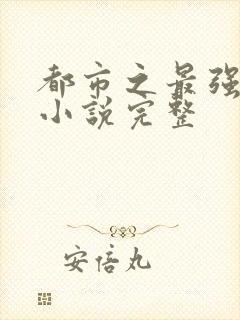 都市之最强
小説完整
安倍丸